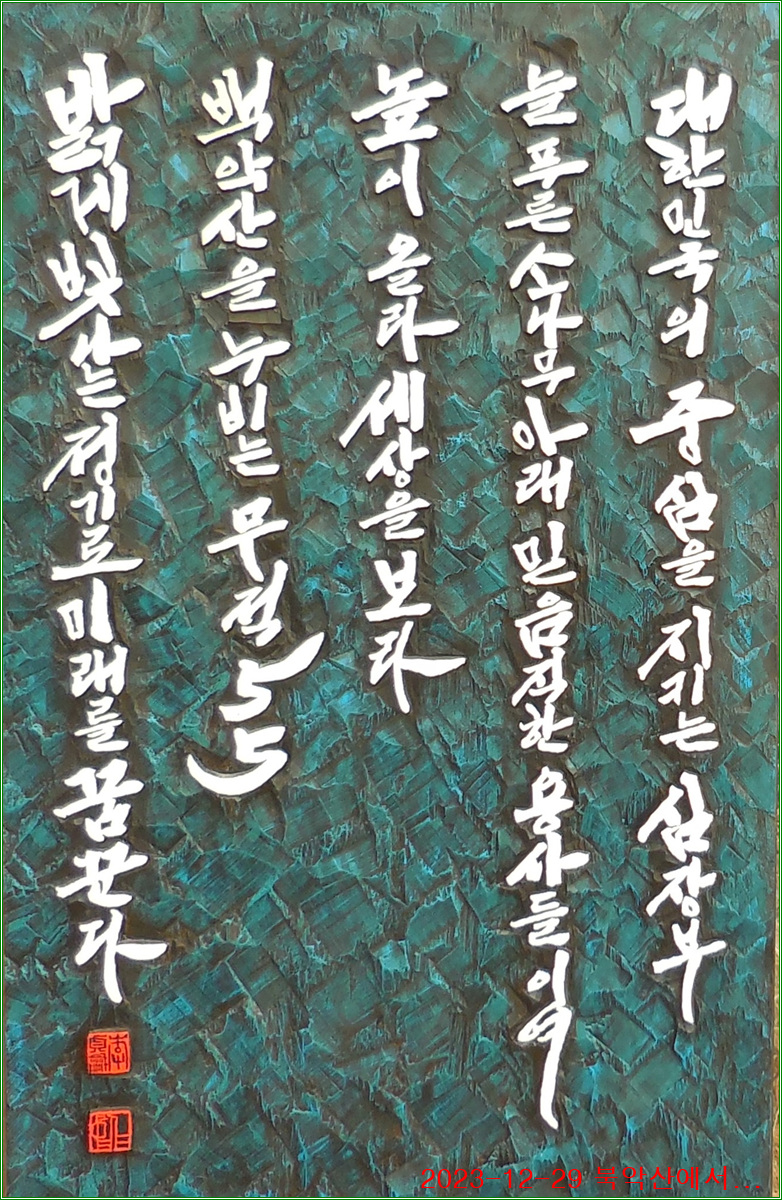 대한민국의 중심을 지키는 심장부
늘 푸른 소나무 아래 믿음직한 용사들이여
높이 올라 세상을 보라
백악산을 누비는 무적 55
밝게 빛나는 정기로 미래를 꿈꾼다
2023-12-29 북악산에서...